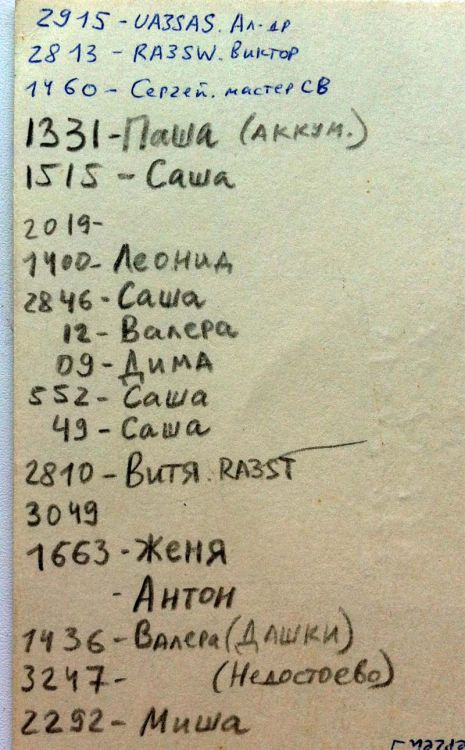 2915 - UA3SAS. Ал-др
2813 - RA3SW. Виктор
1460 - Сергей. мастер СВ
1331 - Паша (аккум.)
1515 - Саша
2019 -
1400 - Леонид
2846 - Саша
12 - Валера
09 - Дима
552 - Саша
49 - Саша
2810 - Витя. RA3ST
3049
1663 - Женя
- Антон
1436 - Валера (Дашки)
3247 - (Недостоево)
2292 - Миша